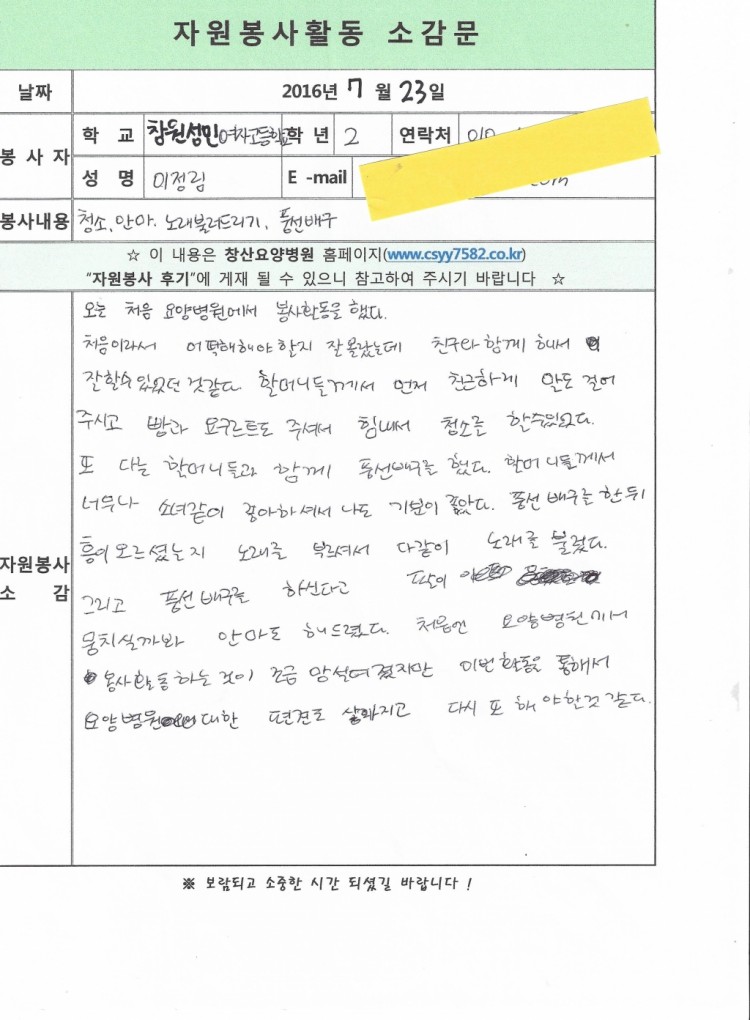 자원봉사활동 소감문
날짜 2016년 7 월 23일
봉 사 자
학 교 창원성민여자고등학교 학 년 2 연락처 010
성 명 이정림 E -mail
봉사내용 청소, 안마, 노래불러드리기, 풍선배구
☆ 이 내용은 창산요양병원 홈페이지(www.csyy7582.co.kr)
"자원봉사 후기"에 게재 될 수 있으니 참고하여 주시기 바랍니다 ☆
자원봉사
소 감
오늘 처음 요양병원에서 봉사활동을 했다.
처음이라서 어떡해해야 할지 잘 몰랐는데 친구와 함께 해서
잘할수 있었던 것같다. 할머니들께서 먼저 친근하게 말도 걸어
주시고 빵과 요구르트도 주셔서 힘내서 청소를 할수있었다.
또 다른 할머니들과 함께 풍선배구를 했다. 할머니들께서
너무나 소녀같이 좋아하셔서 나도 기분이 좋았다. 풍선 배구를 한 뒤
흥이 오르셨는지 노래를 부르셔서 다같이 노래를 불렀다.
그리고 풍선배구를 하신다고 팔이
뭉치실까봐 안마도 해드렸다. 처음엔 요양병원에서
봉사활동하는 것이 조금 망설여졌지만 이번 활동을 통해서
요양병원에 대한 편견도 사라지고 다시 또 해야할것 같다.
※ 보람되고 소중한 시간 되셨길 바랍니다 !